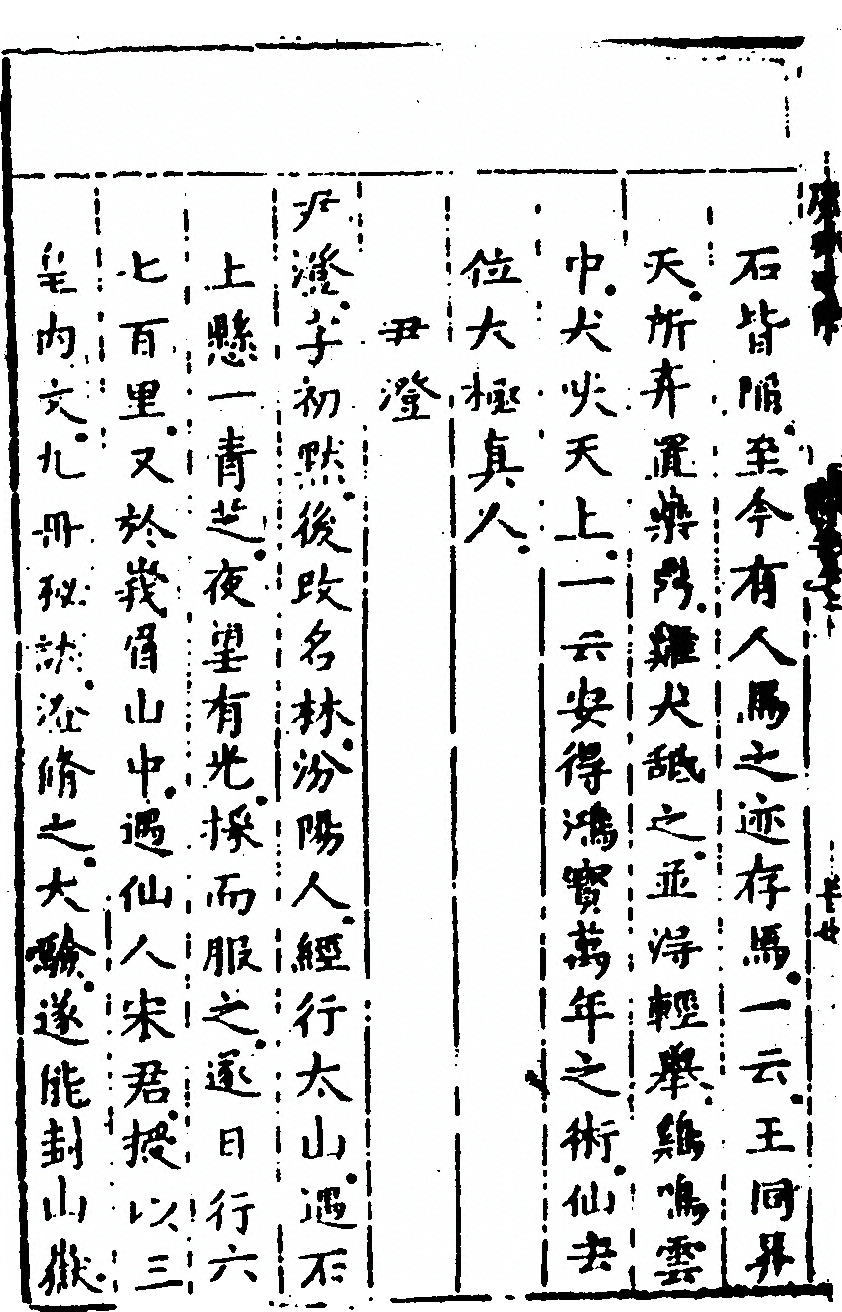 石皆陷至今有人馬之迹存馬一云王同昇
天所弃置藥鼎雞犬舐之並得輕舉鷄鳴雲
中犬吠天上一云安得鴻寶萬年之術仙去
位太極真人
尹澄
尹澄字初默後改名林汾陽人經行太山遇石
上懸一青芝夜望有光採而服之遂日行六
七百里又於峩眉山中遇仙人宋君授以三
皇内文九丹秘訣澄脩之大驗遂能封山嶽